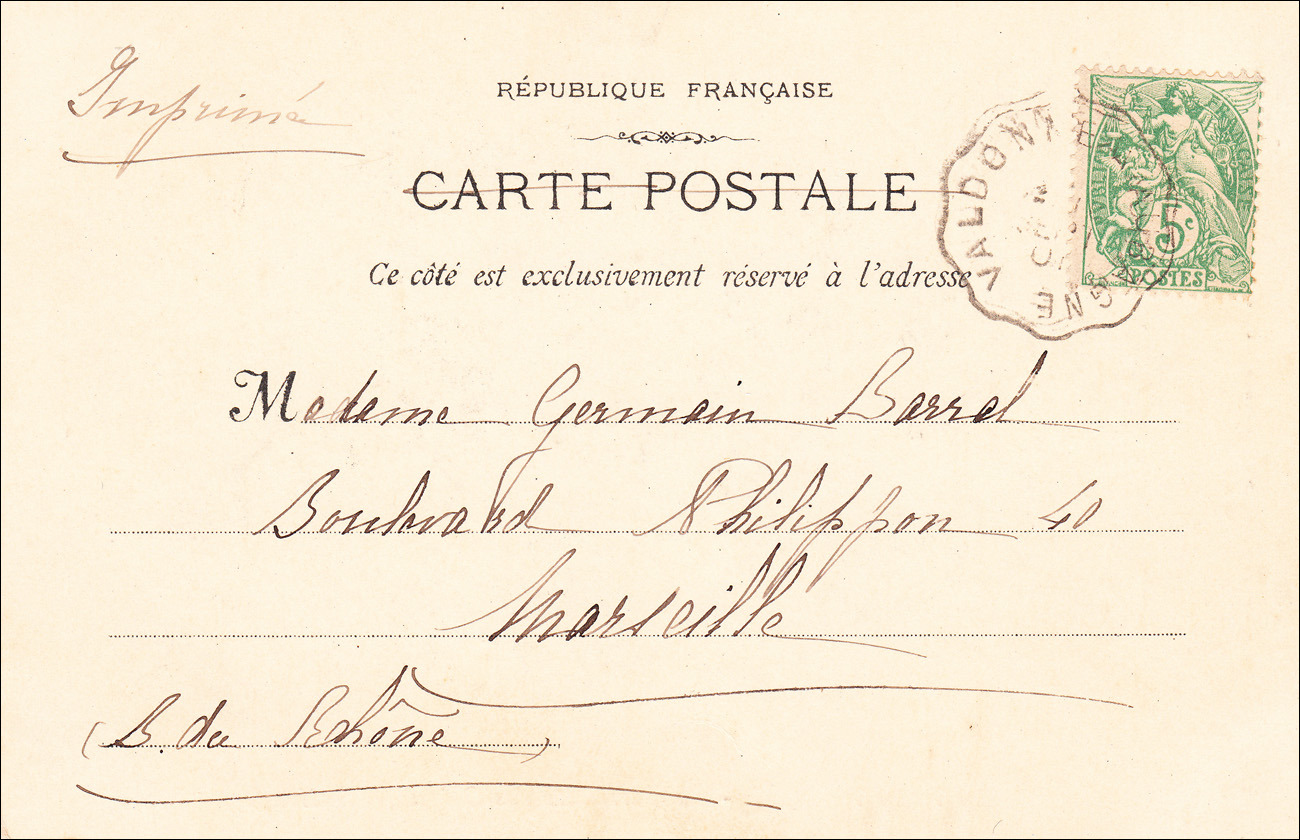 Imprimé
RÉPUBLIQUE FRANÇAISE
CARTE POSTALE
Ce côté est exclusivement réservé à l'adresse
VALDONNE
5c
POSTES
Madame Germain Barral
Boulevard Philippon 40
Marseille
(B. du Rhône)